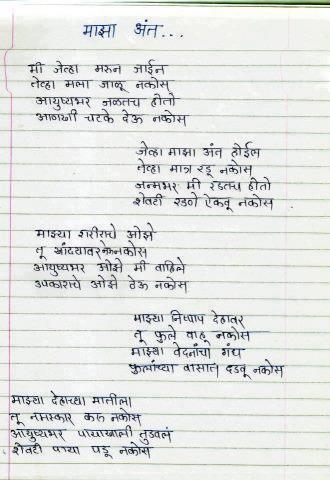 माझा अंत...
मी जेव्हा मरुन जाईन
तेव्हा मला जाळू नकोस
आयुष्यभर जळतच होतो
आणखी चटके देऊ नकोस
जेव्हा माझा अंत होईल
तेव्हा मात्र रडू नकोस
जन्मभर मी रडतच होतो
शेवटी रडणे ऐकवू नकोस
माझ्या शरीराचे ओझे
तू खांद्यावर नेऊ नकोस
आयुष्यभर ओझे मी वाहिले
उपकाराचे ओझे ठेऊ नकोस
माझ्या निष्पाप देहावर
तू फुले वाहू नकोस
माझ्या वेदनांचा गंध
फुलांच्या वासात दडवू नकोस
माझ्या देहाच्या मातीला
तू नमस्कार करू नकोस
आयुष्यभर पायाखाली तुडवलं
शेवटी पाया पडू नकोस